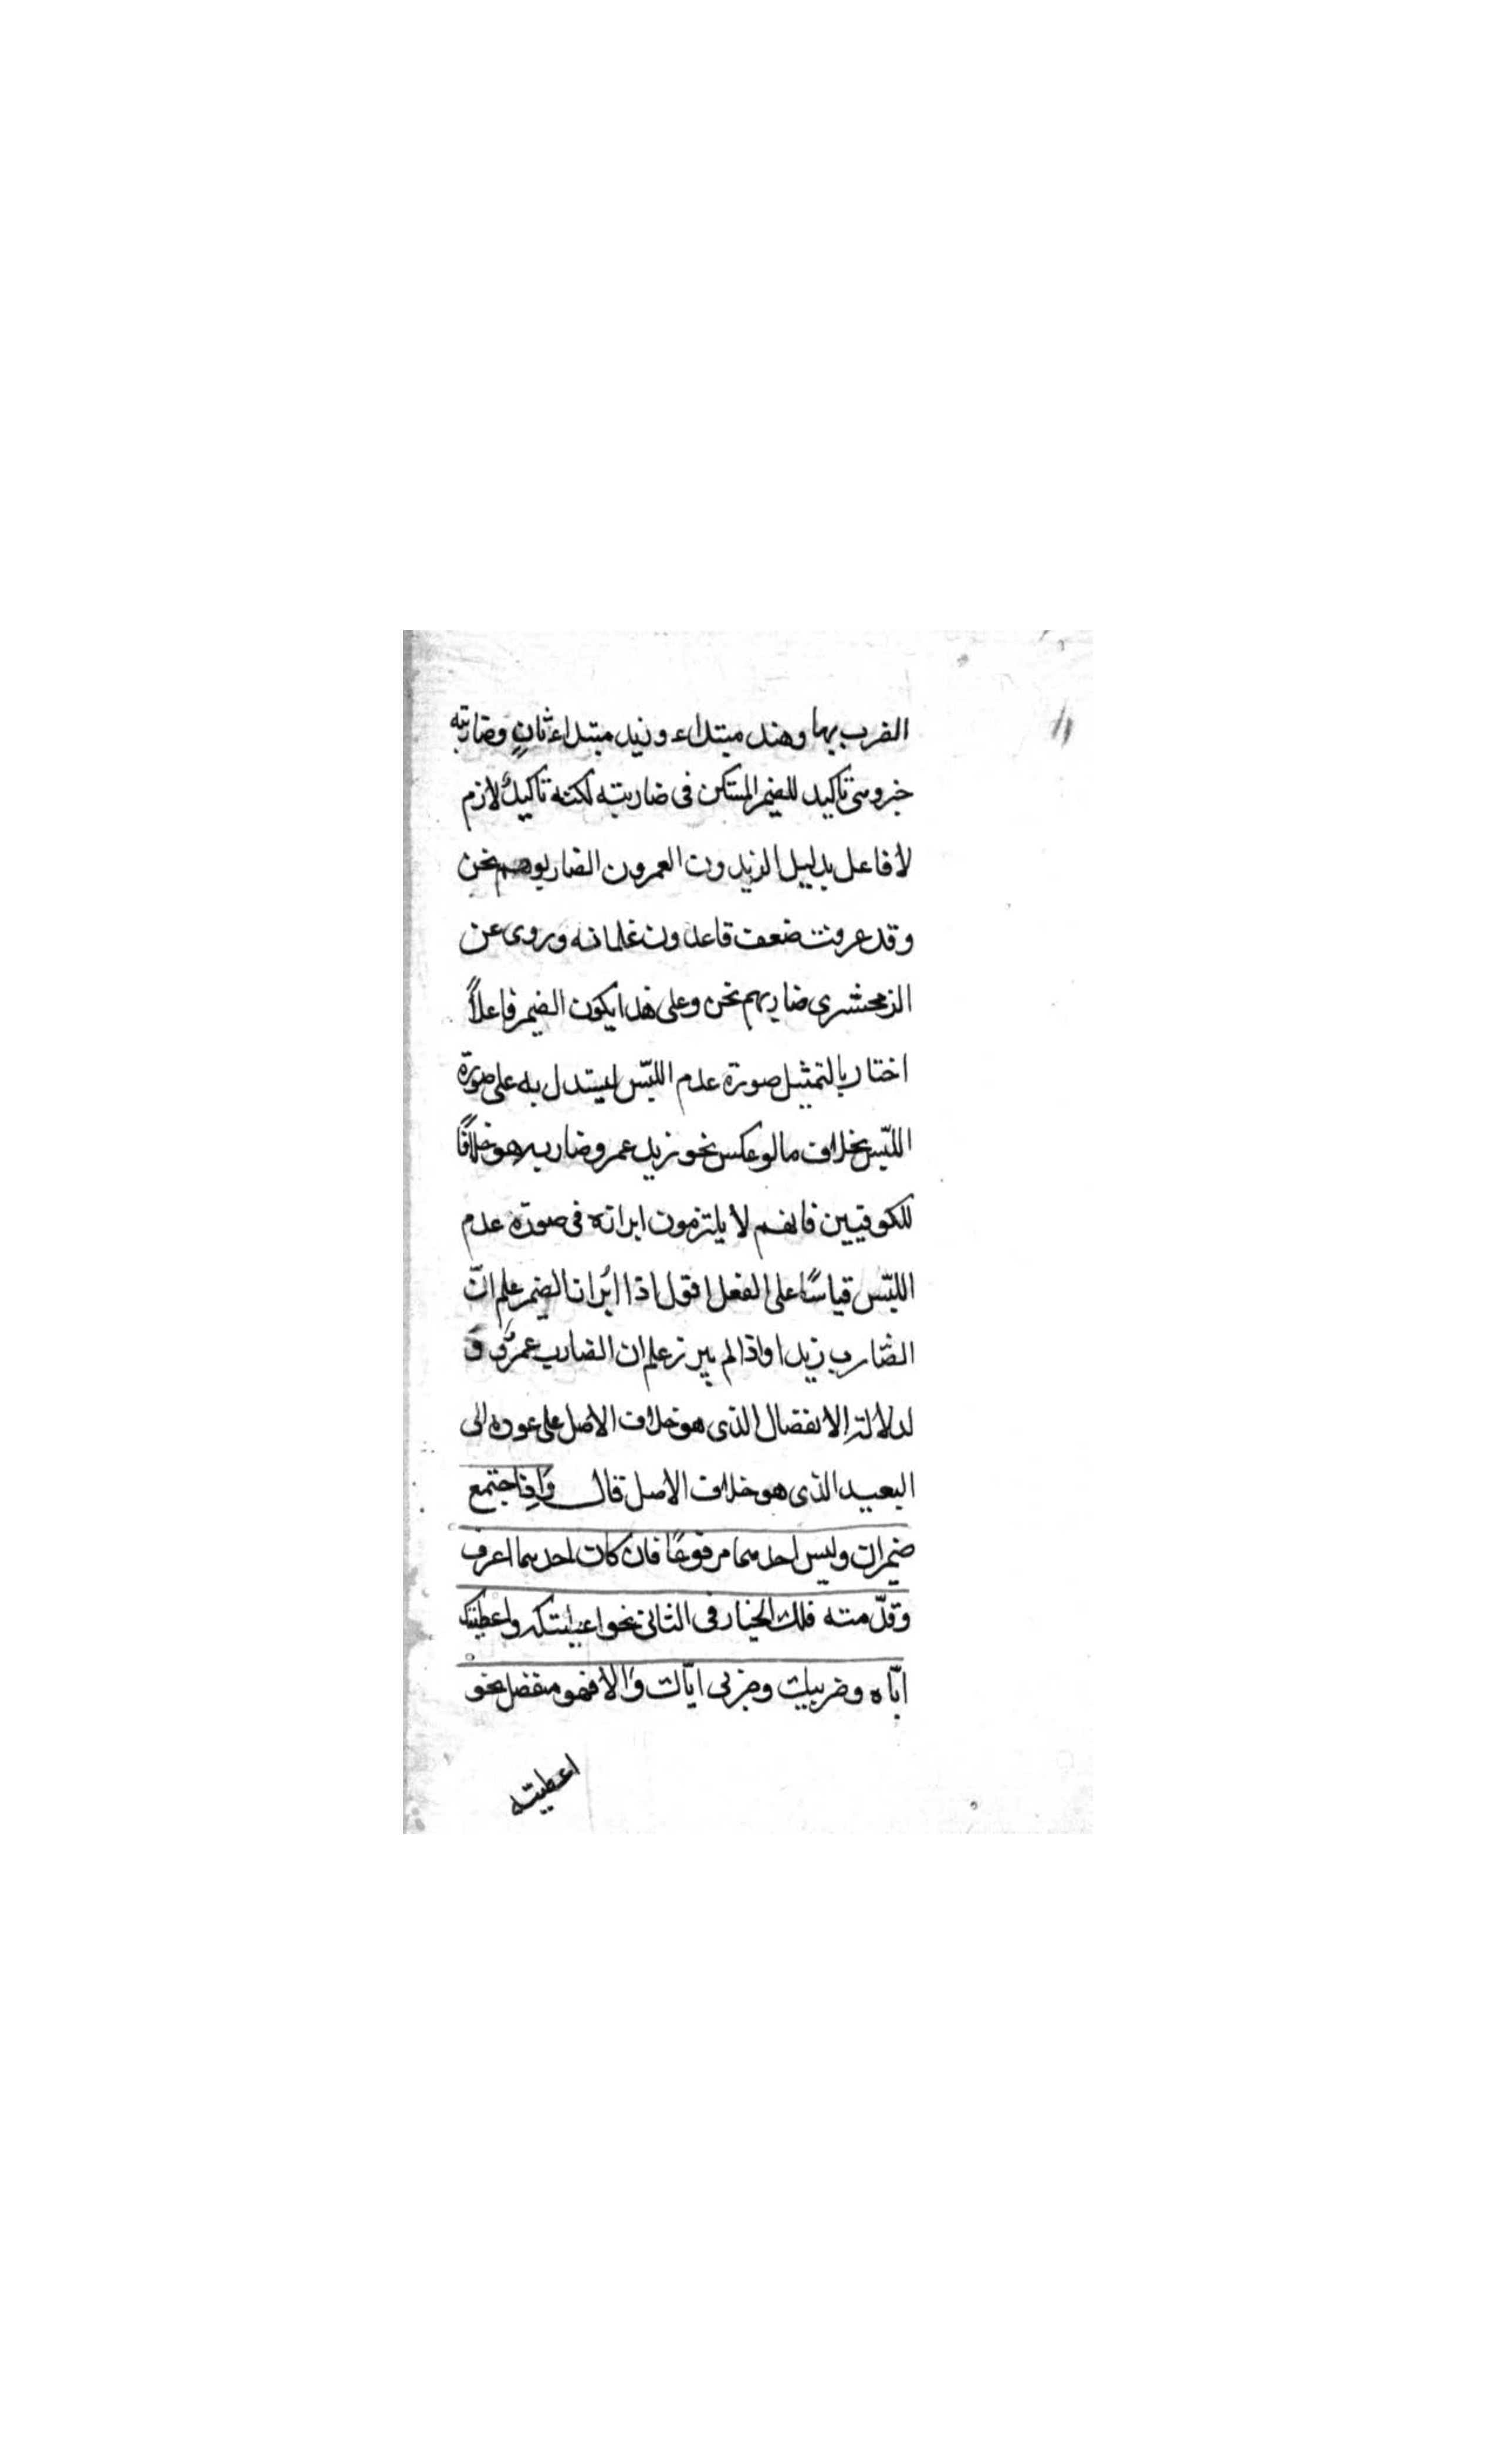 الضرب بها وهند مبتداء وزيد مبتداء ثانٍ وضاربته
خبر وهى تأكيد للضمير المستكن فى ضاربته لكنه تأكيدٌ لازم
لا فاعل بدليل الزيدون العمرون الضاربوهم نحن
وقد عرفت ضعف قاعدون غلمانه وروى عن
الزمخشرى ضاربهم نحن وعلى هذا يكون الضمير فاعلاً
اختار بالتمثيل صورة عدم اللبس ليستدل به على صورة
اللبس بخلاف ما لو عكس نحو زيد عمرو ضاربه هو خلافًا
للكوفيين فانهم لا يلتزمون ابرازه فى صورة عدم
اللبس قياسًا على الفعل اقول اذا ابُراز الضمير علم انّ
الضارب زيد اواذا لم يبرز علم ان الضارب عمرٌو وَ
لدلالة الانفصال الذى هو خلاف الاصل على عوده الى
البعيد الذى هو خلاف الاصل قال وَاذا اجتمع
ضميران وليس احدهما مرفوعًا فان كان احدهما اعرف
وقدّمته فلك الخيار فى الثانى نحو اعطيتكه واعطيتك
ايّاه وضربيك وضربى ايّاك وَالا فهو منفصل نحو
اعطيته